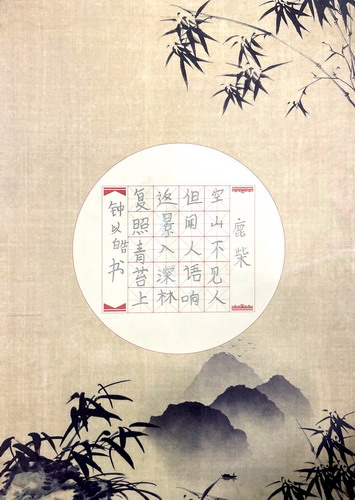 鹿柴
空山不见人
但闻人语响
返景入深林
复照青苔上
钟以皓书